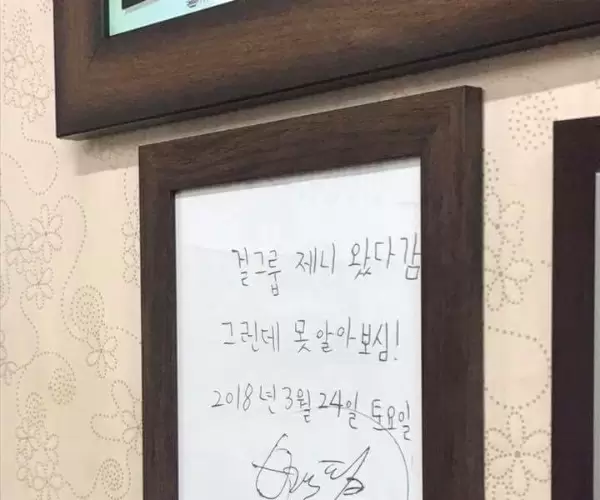 걸그룹 제니 왔다감
그런데 못 알아보심!
2018년 3월 24일 토요일